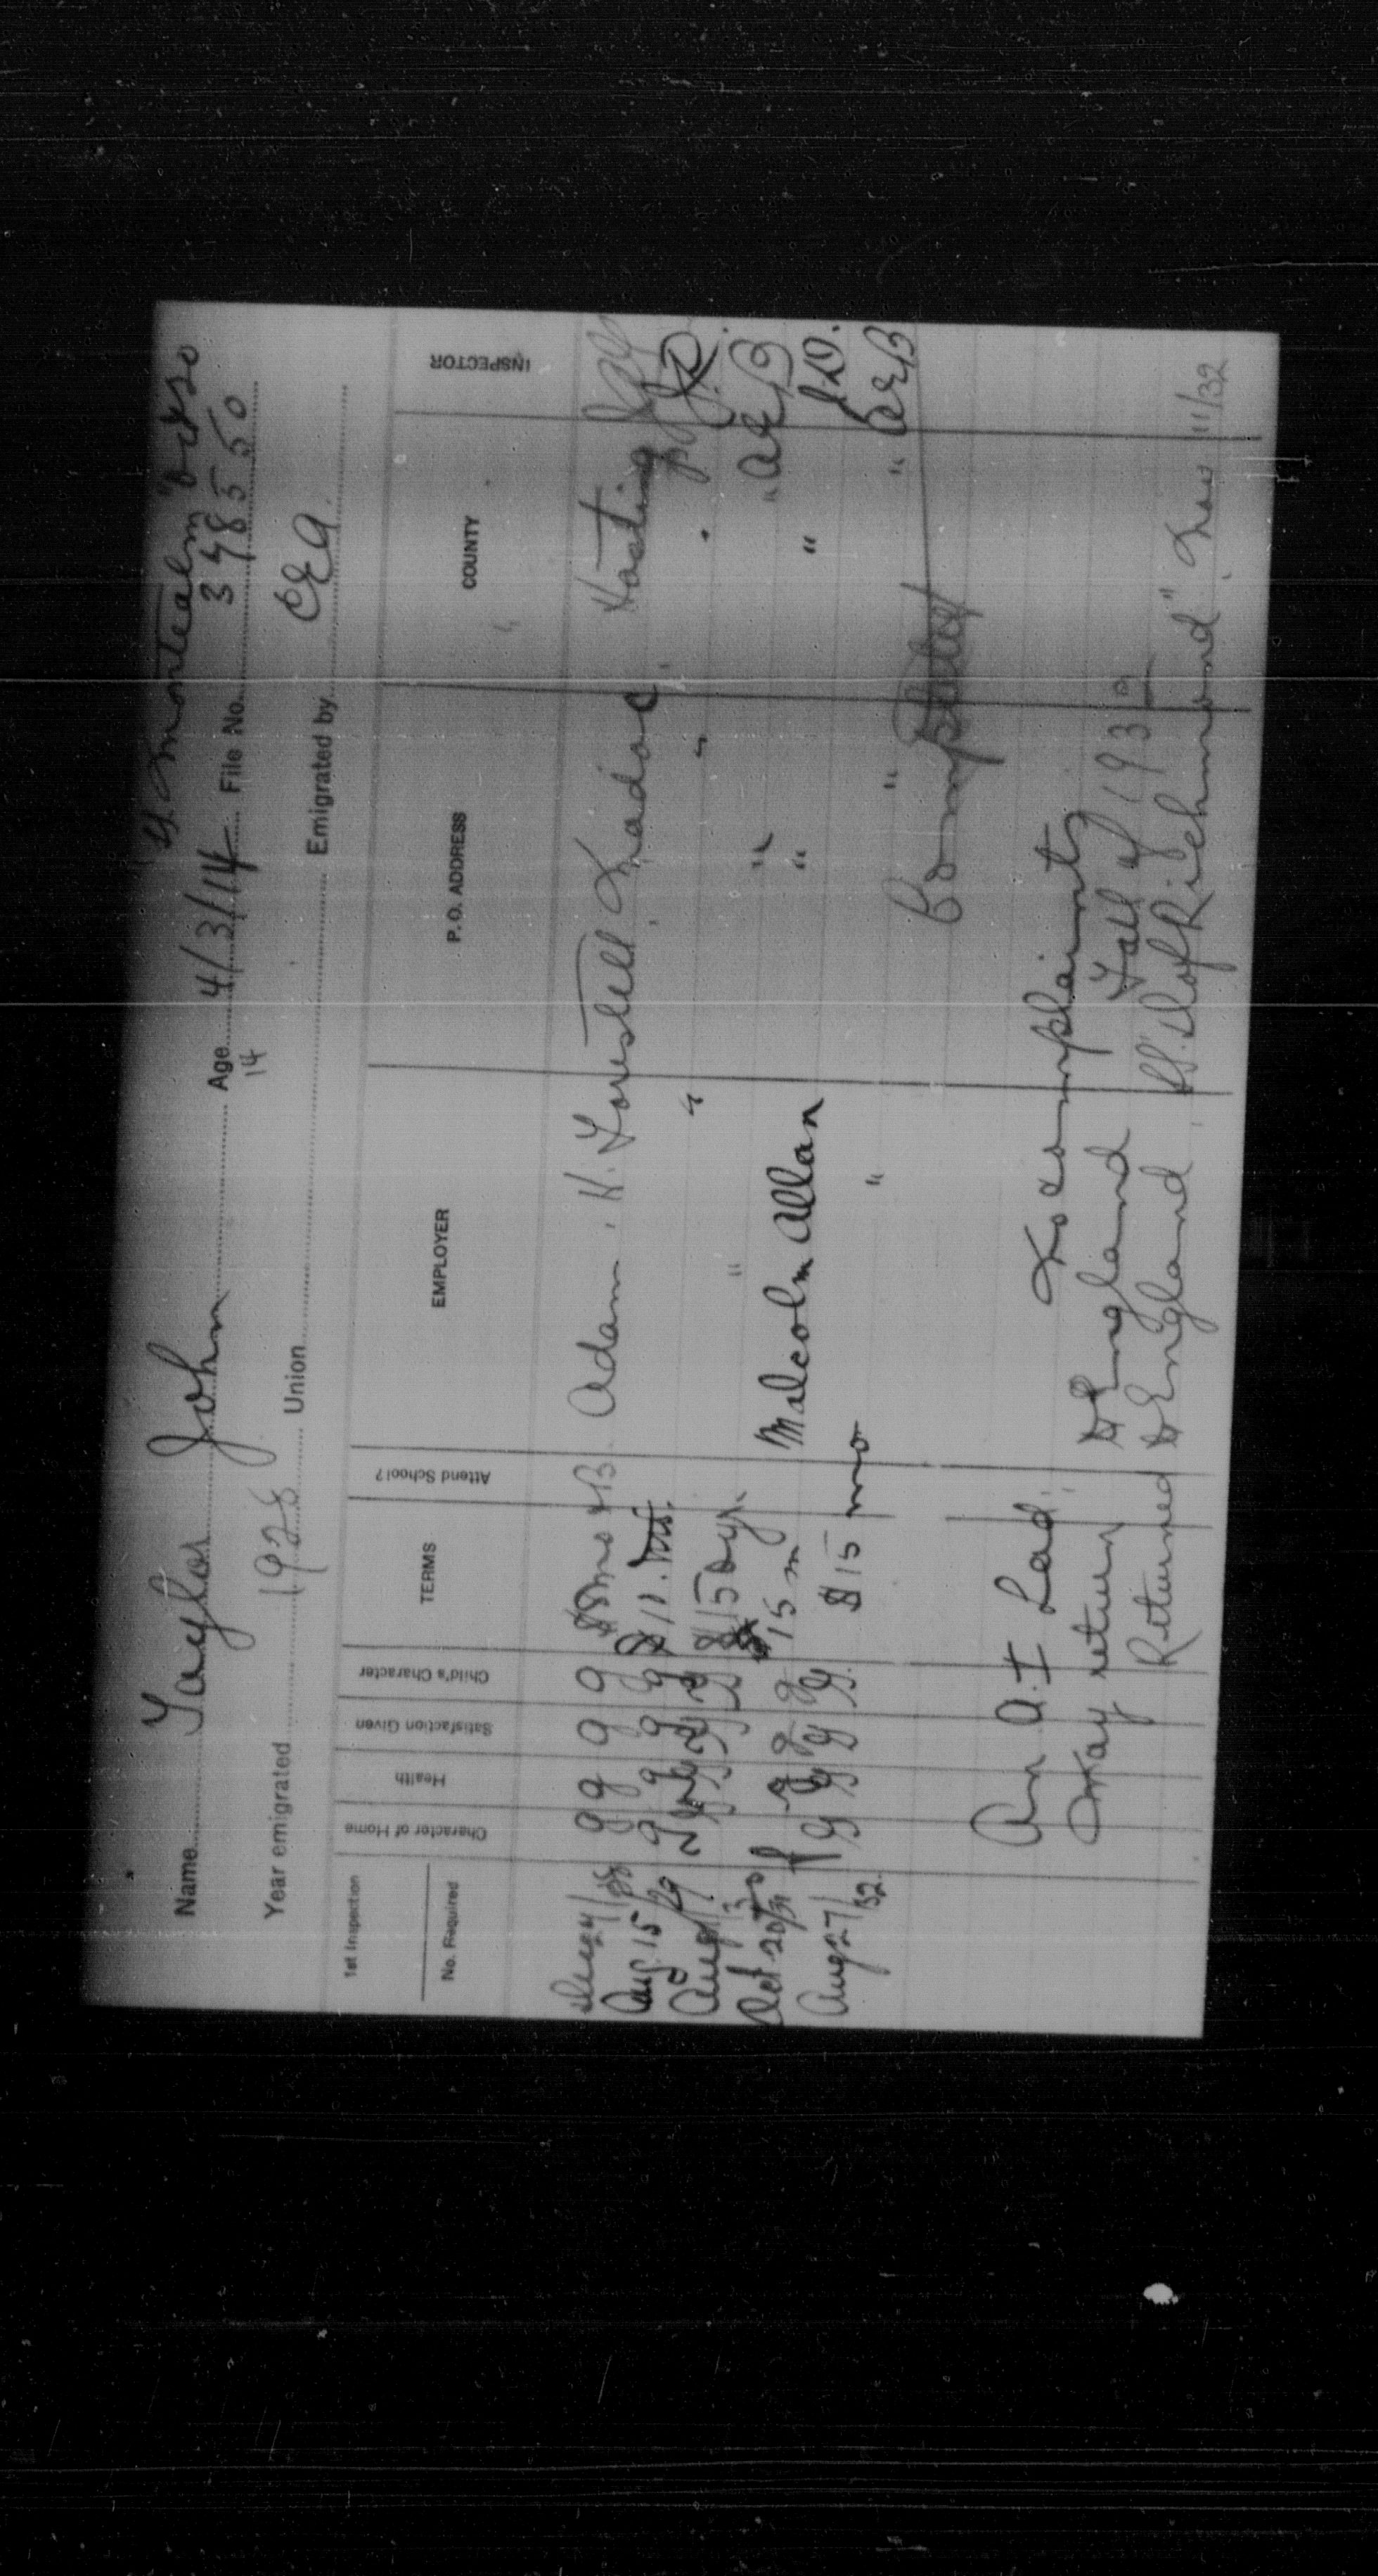 S.S. Montcalm
Name Taylor John Age 4/3/14 File No. 378550
14
Year emigrated 1928 Union Emigrated by CEA
1st Inspection
No. Required
Character of Home
Health
Satisfaction Given
Child's Character
TERMS
Attend School?
EMPLOYER
P.O. ADDRESS
COUNTY
INSPECTOR
24/28 g g g g mo & B Adam. H. Forestell Madoc Hastings
Aug. 15/29 g g g g $11. " " "
Aug $15 " " " AEB
Oct 20/31 g g g 15 m Malcolm Allan " " J.D.
Aug 27/32. G G G G. $15 mo " " " AEB
Completed
An A.I Lad. No complaints
May return to England Fall of 1932
Returned to England, SS. "D of Richmond", Nov 11/32